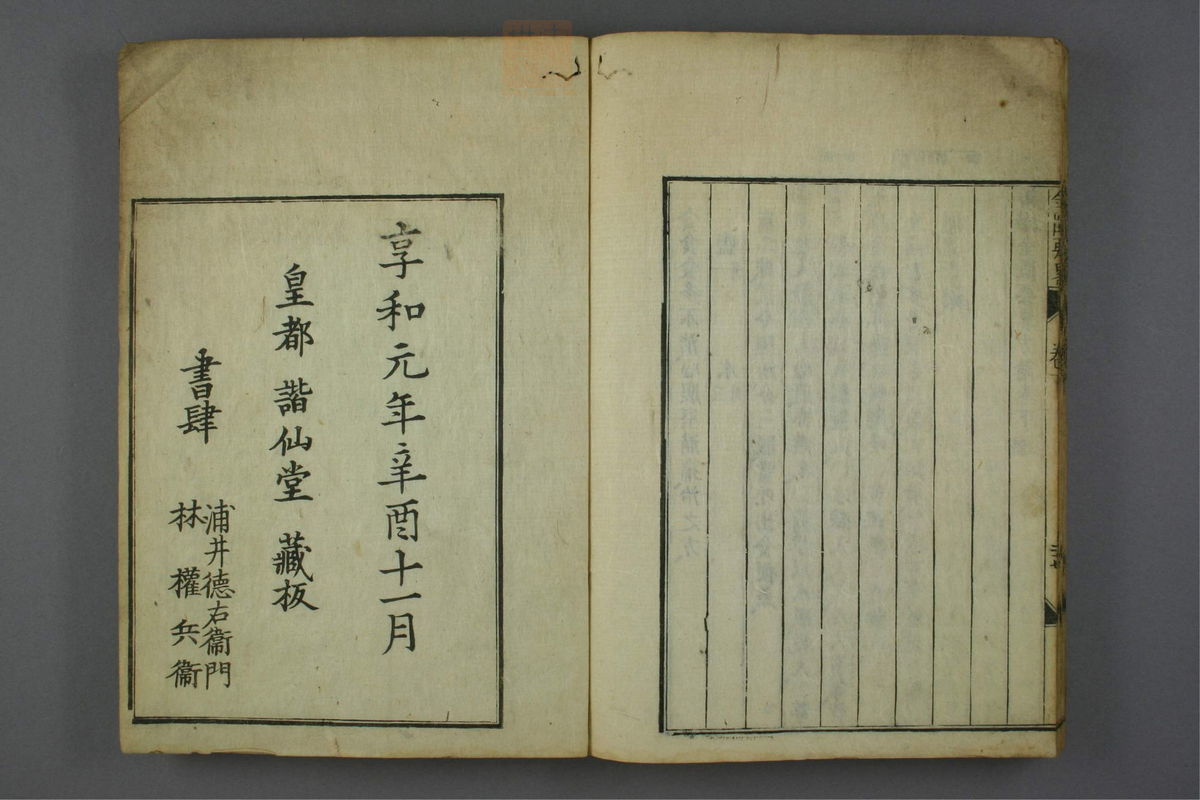 金匱要略
享和元年辛酉十一月
皇都 諧仙堂 藏板
書肆
浦井德右衞門
林權兵衞